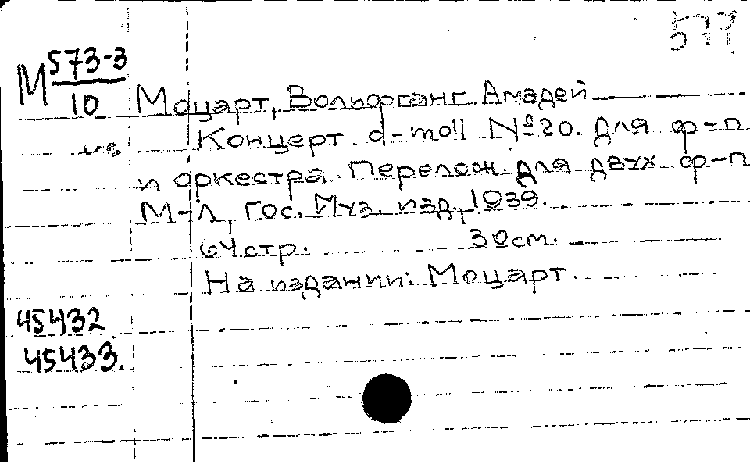 577
М 573-3
10
Моцарт, Вольфганг Амадей
Концерт d-moll №20. Для ф-п
и оркестра. Перелож для двух ф-п
М-Л, Гос. Муз. изд, 1939.
64 стр. 30 см.
На издании: Моцарт.
45432
45433.